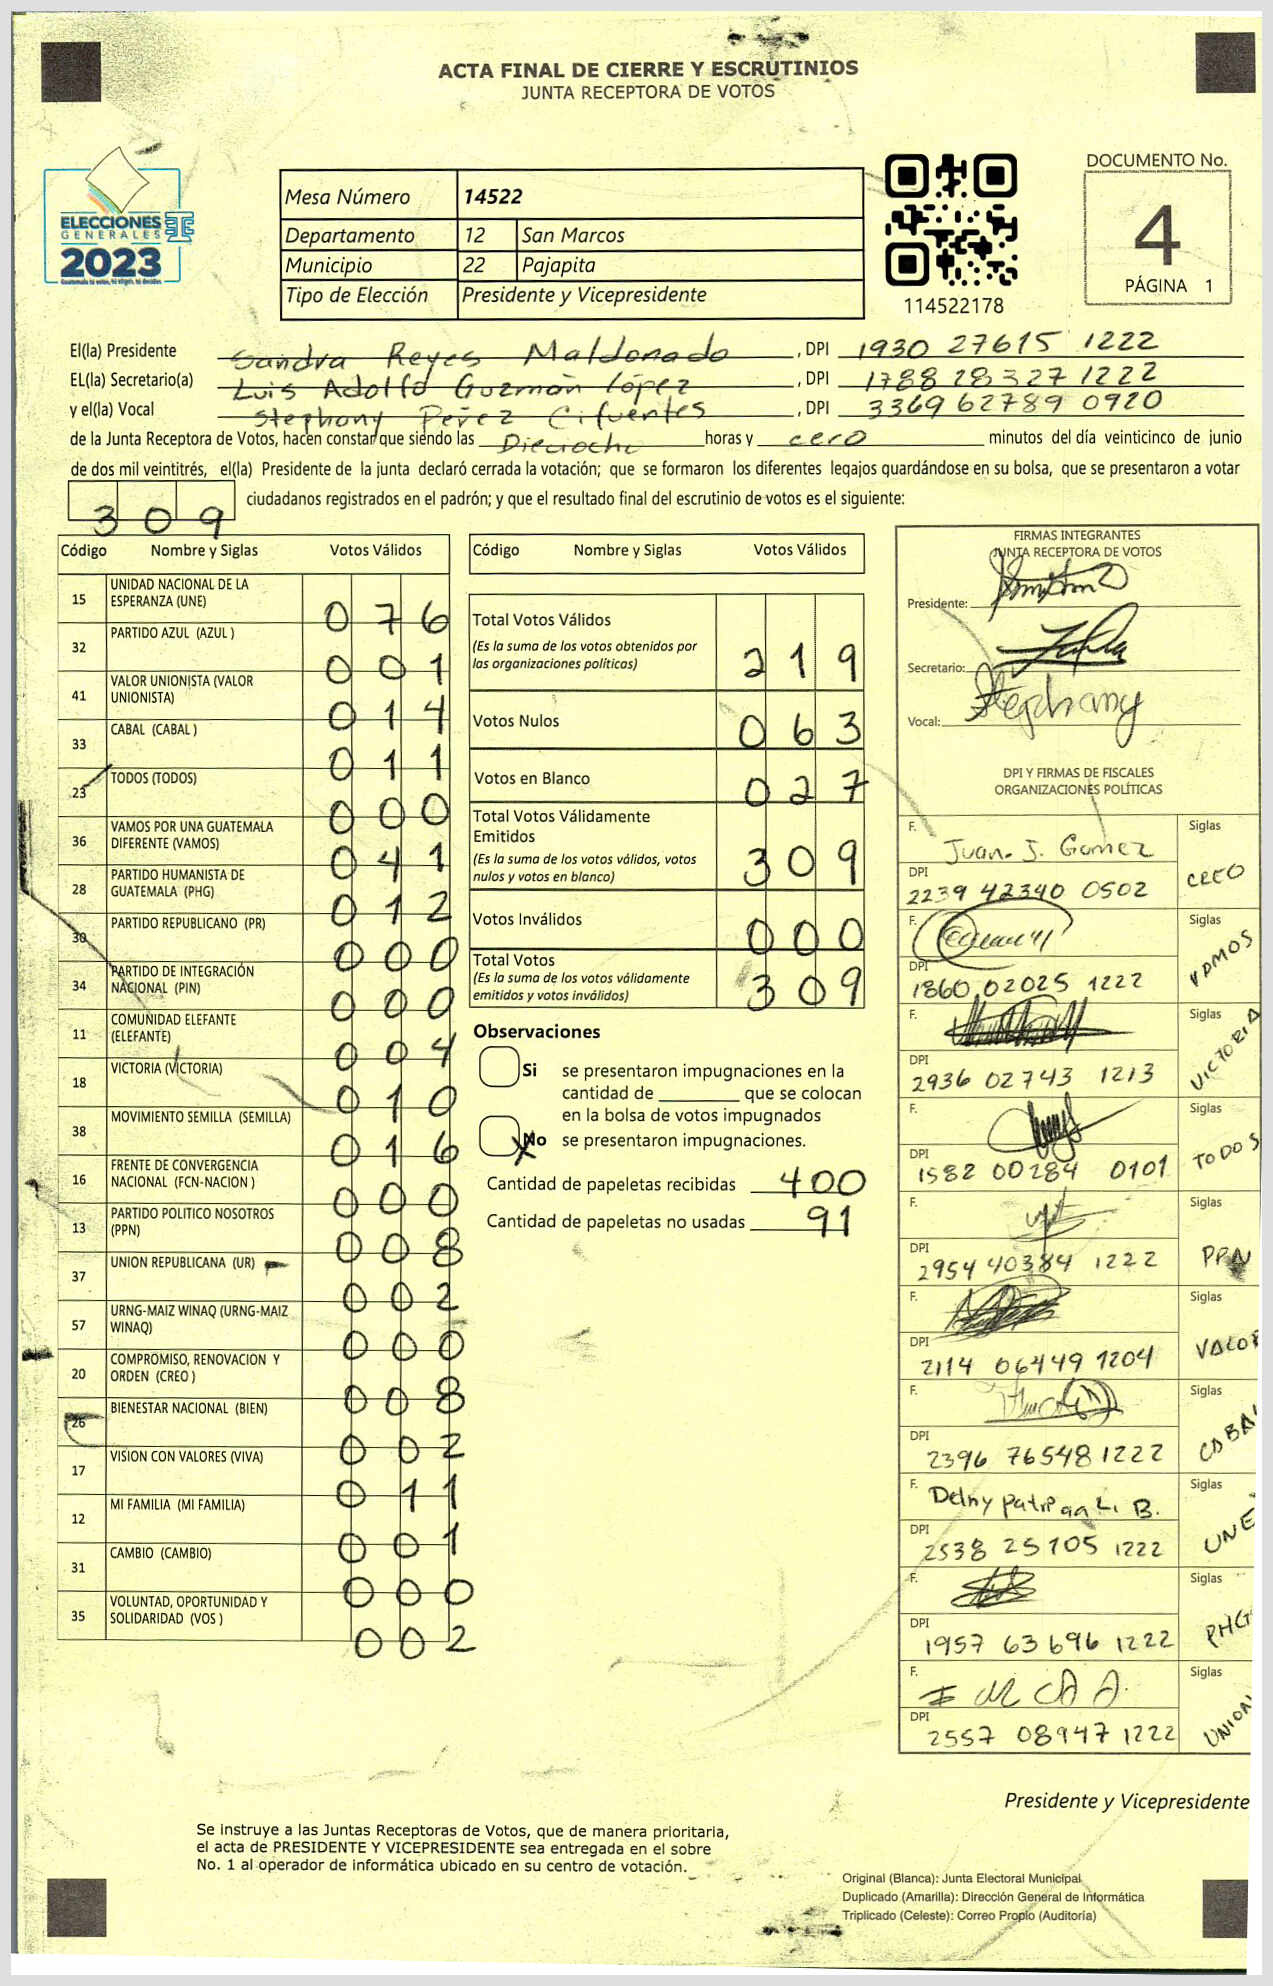 ACTA FINAL DE CIERRE Y ESCRUTINIOS
JUNTA RECEPTORA DE VOTOS
ELECCIONES
GENERALES
2023
Mesa Número 14522
Departamento 12 San Marcos
Municipio 22 Pajapita
Tipo de Elección Presidente y Vicepresidente
114522178
DOCUMENTO No.
4
PÁGINA 1
El(la) Presidente Sandra Reyes Maldonado , DPI 1930 27615 1222
EL(la) Secretario(a) Luis Adolfo Guzmán López , DPI 1788 28327 1222
y el(la) Vocal Stephany Pérez Cifuentes , DPI 3369 62789 0920
de la Junta Receptora de Votos, hacen constar que siendo las Dieciocho horas y cero minutos del día veinticinco de junio
de dos mil veintitrés, el(la) Presidente de la junta declaró cerrada la votación; que se formaron los diferentes legajos guardándose en su bolsa, que se presentaron a votar
309 ciudadanos registrados en el padrón; y que el resultado final del escrutinio de votos es el siguiente:
Código Nombre y Siglas Votos Válidos
15 UNIDAD NACIONAL DE LA ESPERANZA (UNE) 076
32 PARTIDO AZUL (AZUL ) 001
41 VALOR UNIONISTA (VALOR UNIONISTA) 014
33 CABAL (CABAL ) 011
23 TODOS (TODOS) 000
36 VAMOS POR UNA GUATEMALA DIFERENTE (VAMOS) 041
28 PARTIDO HUMANISTA DE GUATEMALA (PHG) 012
30 PARTIDO REPUBLICANO (PR) 000
34 PARTIDO DE INTEGRACIÓN NACIONAL (PIN) 000
11 COMUNIDAD ELEFANTE (ELEFANTE) 004
18 VICTORIA (VICTORIA) 010
38 MOVIMIENTO SEMILLA (SEMILLA) 016
16 FRENTE DE CONVERGENCIA NACIONAL (FCN-NACION ) 000
13 PARTIDO POLITICO NOSOTROS (PPN) 008
37 UNION REPUBLICANA (UR) 002
57 URNG-MAIZ WINAQ (URNG-MAIZ WINAQ) 000
20 COMPROMISO, RENOVACION Y ORDEN (CREO ) 008
26 BIENESTAR NACIONAL (BIEN) 002
17 VISION CON VALORES (VIVA) 011
12 MI FAMILIA (MI FAMILIA) 001
31 CAMBIO (CAMBIO) 000
35 VOLUNTAD, OPORTUNIDAD Y SOLIDARIDAD (VOS ) 002
Código Nombre y Siglas Votos Válidos
Total Votos Válidos
(Es la suma de los votos obtenidos por
las organizaciones políticas) 219
Votos Nulos 063
Votos en Blanco 027
Total Votos Válidamente
Emitidos
(Es la suma de los votos válidos, votos
nulos y votos en blanco) 309
Votos Inválidos 000
Total Votos
(Es la suma de los votos válidamente
emitidos y votos inválidos) 309
Observaciones
Si se presentaron impugnaciones en la
cantidad de ________ que se colocan
en la bolsa de votos impugnados
X No se presentaron impugnaciones.
Cantidad de papeletas recibidas 400
Cantidad de papeletas no usadas 91
FIRMAS INTEGRANTES
JUNTA RECEPTORA DE VOTOS
Presidente:
Secretario:
Vocal: Stephany
DPI Y FIRMAS DE FISCALES
ORGANIZACIONES POLÍTICAS
F. Juan J. Gomez Siglas CREO
DPI 2239 42340 0502
F. Siglas VAMOS
DPI 1860 02025 1222
F. Siglas VICTORIA
DPI 2936 02743 1213
F. Siglas TODOS
DPI 1582 00284 0101
F. Siglas PPN
DPI 2954 40384 1222
F. Siglas VALOR
DPI 2114 06449 1204
F. Siglas CABAL
DPI 2396 76548 1222
F. Siglas UNE
DPI 2538 25105 1222
F. Siglas PHG
DPI 1957 63696 1222
F. Siglas UNION
DPI 2557 08947 1222
Presidente y Vicepresidente
Se instruye a las Juntas Receptoras de Votos, que de manera prioritaria,
el acta de PRESIDENTE Y VICEPRESIDENTE sea entregada en el sobre
No. 1 al operador de informática ubicado en su centro de votación.
Original (Blanca): Junta Electoral Municipal
Duplicado (Amarilla): Dirección General de Informática
Triplicado (Celeste): Correo Propio (Auditoría)